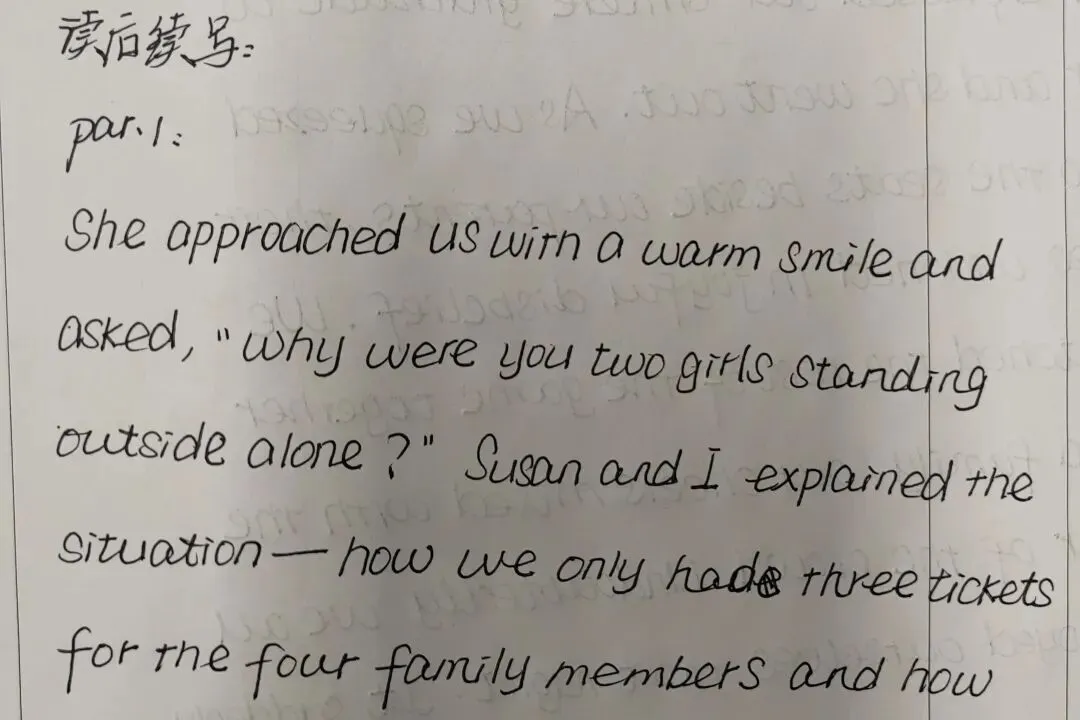 读后续写:
par.1:
She approached us with a warm smile and
asked, "why were you two girls standing
outside alone?" Susan and I explained the
situation — how we only had three tickets
for the four family members and how